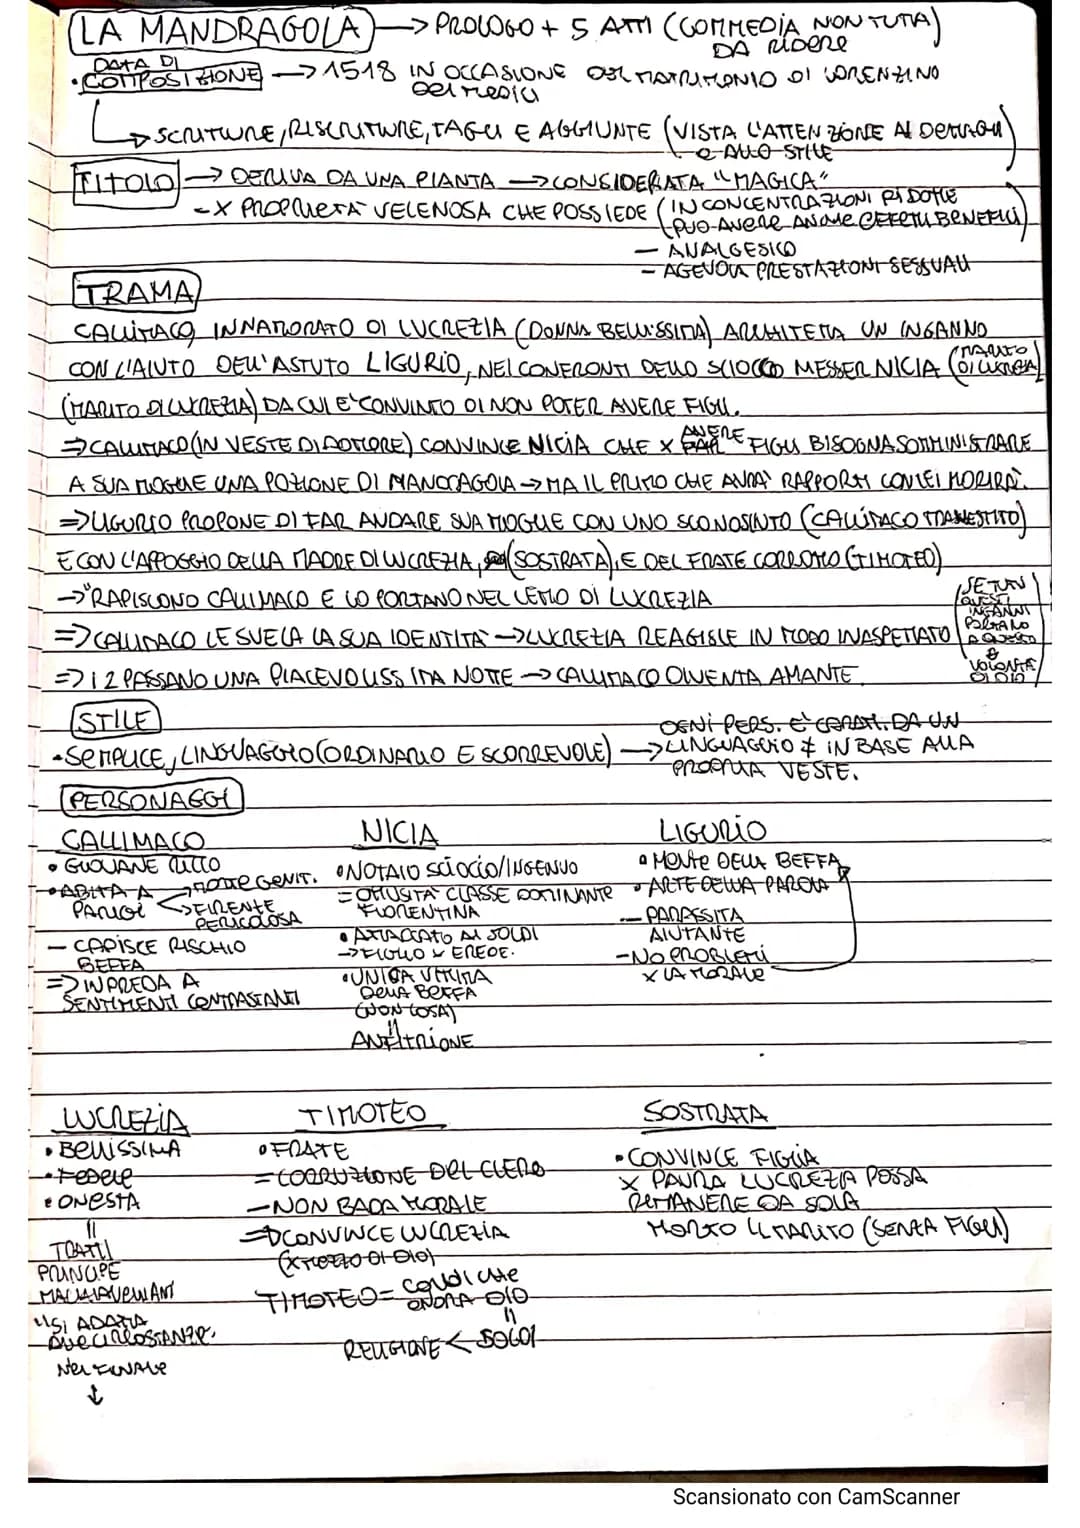 LA MANDRAGOLA → PROLOGO + 5 ATTI (COMMEDIA NON TUTTA)
DA RIDERE
• DATA DI COMPOSIZIONE → 1518 IN OCCASIONE DEL MATRIMONIO DI LORENZINO
DEI MEDICI
→ SCRITTURE, RISCRITTURE, TAGLI E AGGIUNTE (VISTA L'ATTENZIONE AI DETTAGLI
E ALLO STILE)
TITOLO → DERIVA DA UNA PIANTA → CONSIDERATA "MAGICA"
- X PROPRIETÀ VELENOSA CHE POSSIEDE (IN CONCENTRAZIONI RIDOTTE
PUÒ AVERE ANCHE EFFETTI BENEFICI)
- ANALGESICO
- AGEVOLA PRESTAZIONI SESSUALI
TRAMA
CALLIMACO, INNAMORATO DI LUCREZIA (DONNA BELLISSIMA) ARCHITETTA UN INGANNO
CON L'AIUTO DELL'ASTUTO LIGURIO, NEI CONFRONTI DELLO SCIOCCO MESSER NICIA (MARITO DI LUCREZIA)
(MARITO DI LUCREZIA) DA CUI E' CONVINTO DI NON POTER AVERE FIGLI.
⇒ CALLIMACO (IN VESTE DI DOTTORE) CONVINCE NICIA CHE X AVERE FIGLI BISOGNA SOMMINISTRARE
A SUA MOGLIE UNA POZIONE DI MANDRAGOLA → MA IL PRIMO CHE AVRA' RAPPORTI CON LEI MORIRA'.
⇒ LIGURIO PROPONE DI FAR ANDARE SUA MOGLIE CON UNO SCONOSINTO (CALLIMACO TRAVESTITO)
E CON L'APPOGGIO DELLA MADRE DI LUCREZIA, (SOSTRATA), E DEL FRATE CORROTTO (TIMOTEO)
→ "RAPISCONO CALLIMACO E LO PORTANO NEL LETTO DI LUCREZIA
⇒ CALLIMACO LE SVELA LA SUA IDENTITA' → LUCREZIA REAGISCE IN MODO INASPETTATO
(SE TUTTI QUESTI INGANNI PORTANO A QUESTO È VOLONTÀ DI DIO)
⇒ I 2 PASSANO UNA PIACEVOLISSIMA NOTTE → CALLIMACO DIVENTA AMANTE
STILE
• SEMPLICE, LINGUAGGIO (ORDINARIO E SCORREVOLE) → OGNI PERS. E' CARATT. DA UN
LINGUAGGIO ≠ IN BASE ALLA
PROPRIA VESTE.
PERSONAGGI
CALLIMACO
• GIOVANE RICCO
• ABITA A PARIGI → MORTE GENIT.
→ FIRENZE PERICOLOSA
- CAPISCE RISCHIO
BEFFA
⇒ IN PREDA A
SENTIMENTI CONTRASTANTI
NICIA
• NOTAIO SCIOCCO/INGENUO
= OTTUSITA' CLASSE DOMINANTE
FIORENTINA
• ATTACCATO AI SOLDI
→ FIGLIO X EREDE.
• UNICA VITTIMA
DELLA BEFFA
(NON LO SA)
=
ANFITRIONE
LIGURIO
• MENTE DELLA BEFFA
• ARTE DELLA PAROLA
- PARASSITA
AIUTANTE
- NO PROBLEMI
X LA MORALE
LUCREZIA
• BELLISSIMA
• FEDELE
• ONESTA
=
TRATTI
PRINCIPE
MACHIAVELLIANI
"SI ADATTA
ALLE CIRCOSTANZE.
NEL FINALE
↓
TIMOTEO
• FRATE
= CORRUZIONE DEL CLERO
- NON BADA MORALE
⇒ CONVINCE LUCREZIA
(X MEZZO DI DIO)
TIMOTEO = COLUI CHE
ONORA DIO
=
RELIGIONE < SOLDI
SOSTRATA
• CONVINCE FIGLIA
X PAURA LUCREZIA POSSA
RIMANERE DA SOLA
MORTO IL MARITO (SENZA FIGLI)
Scansionato con CamScanner